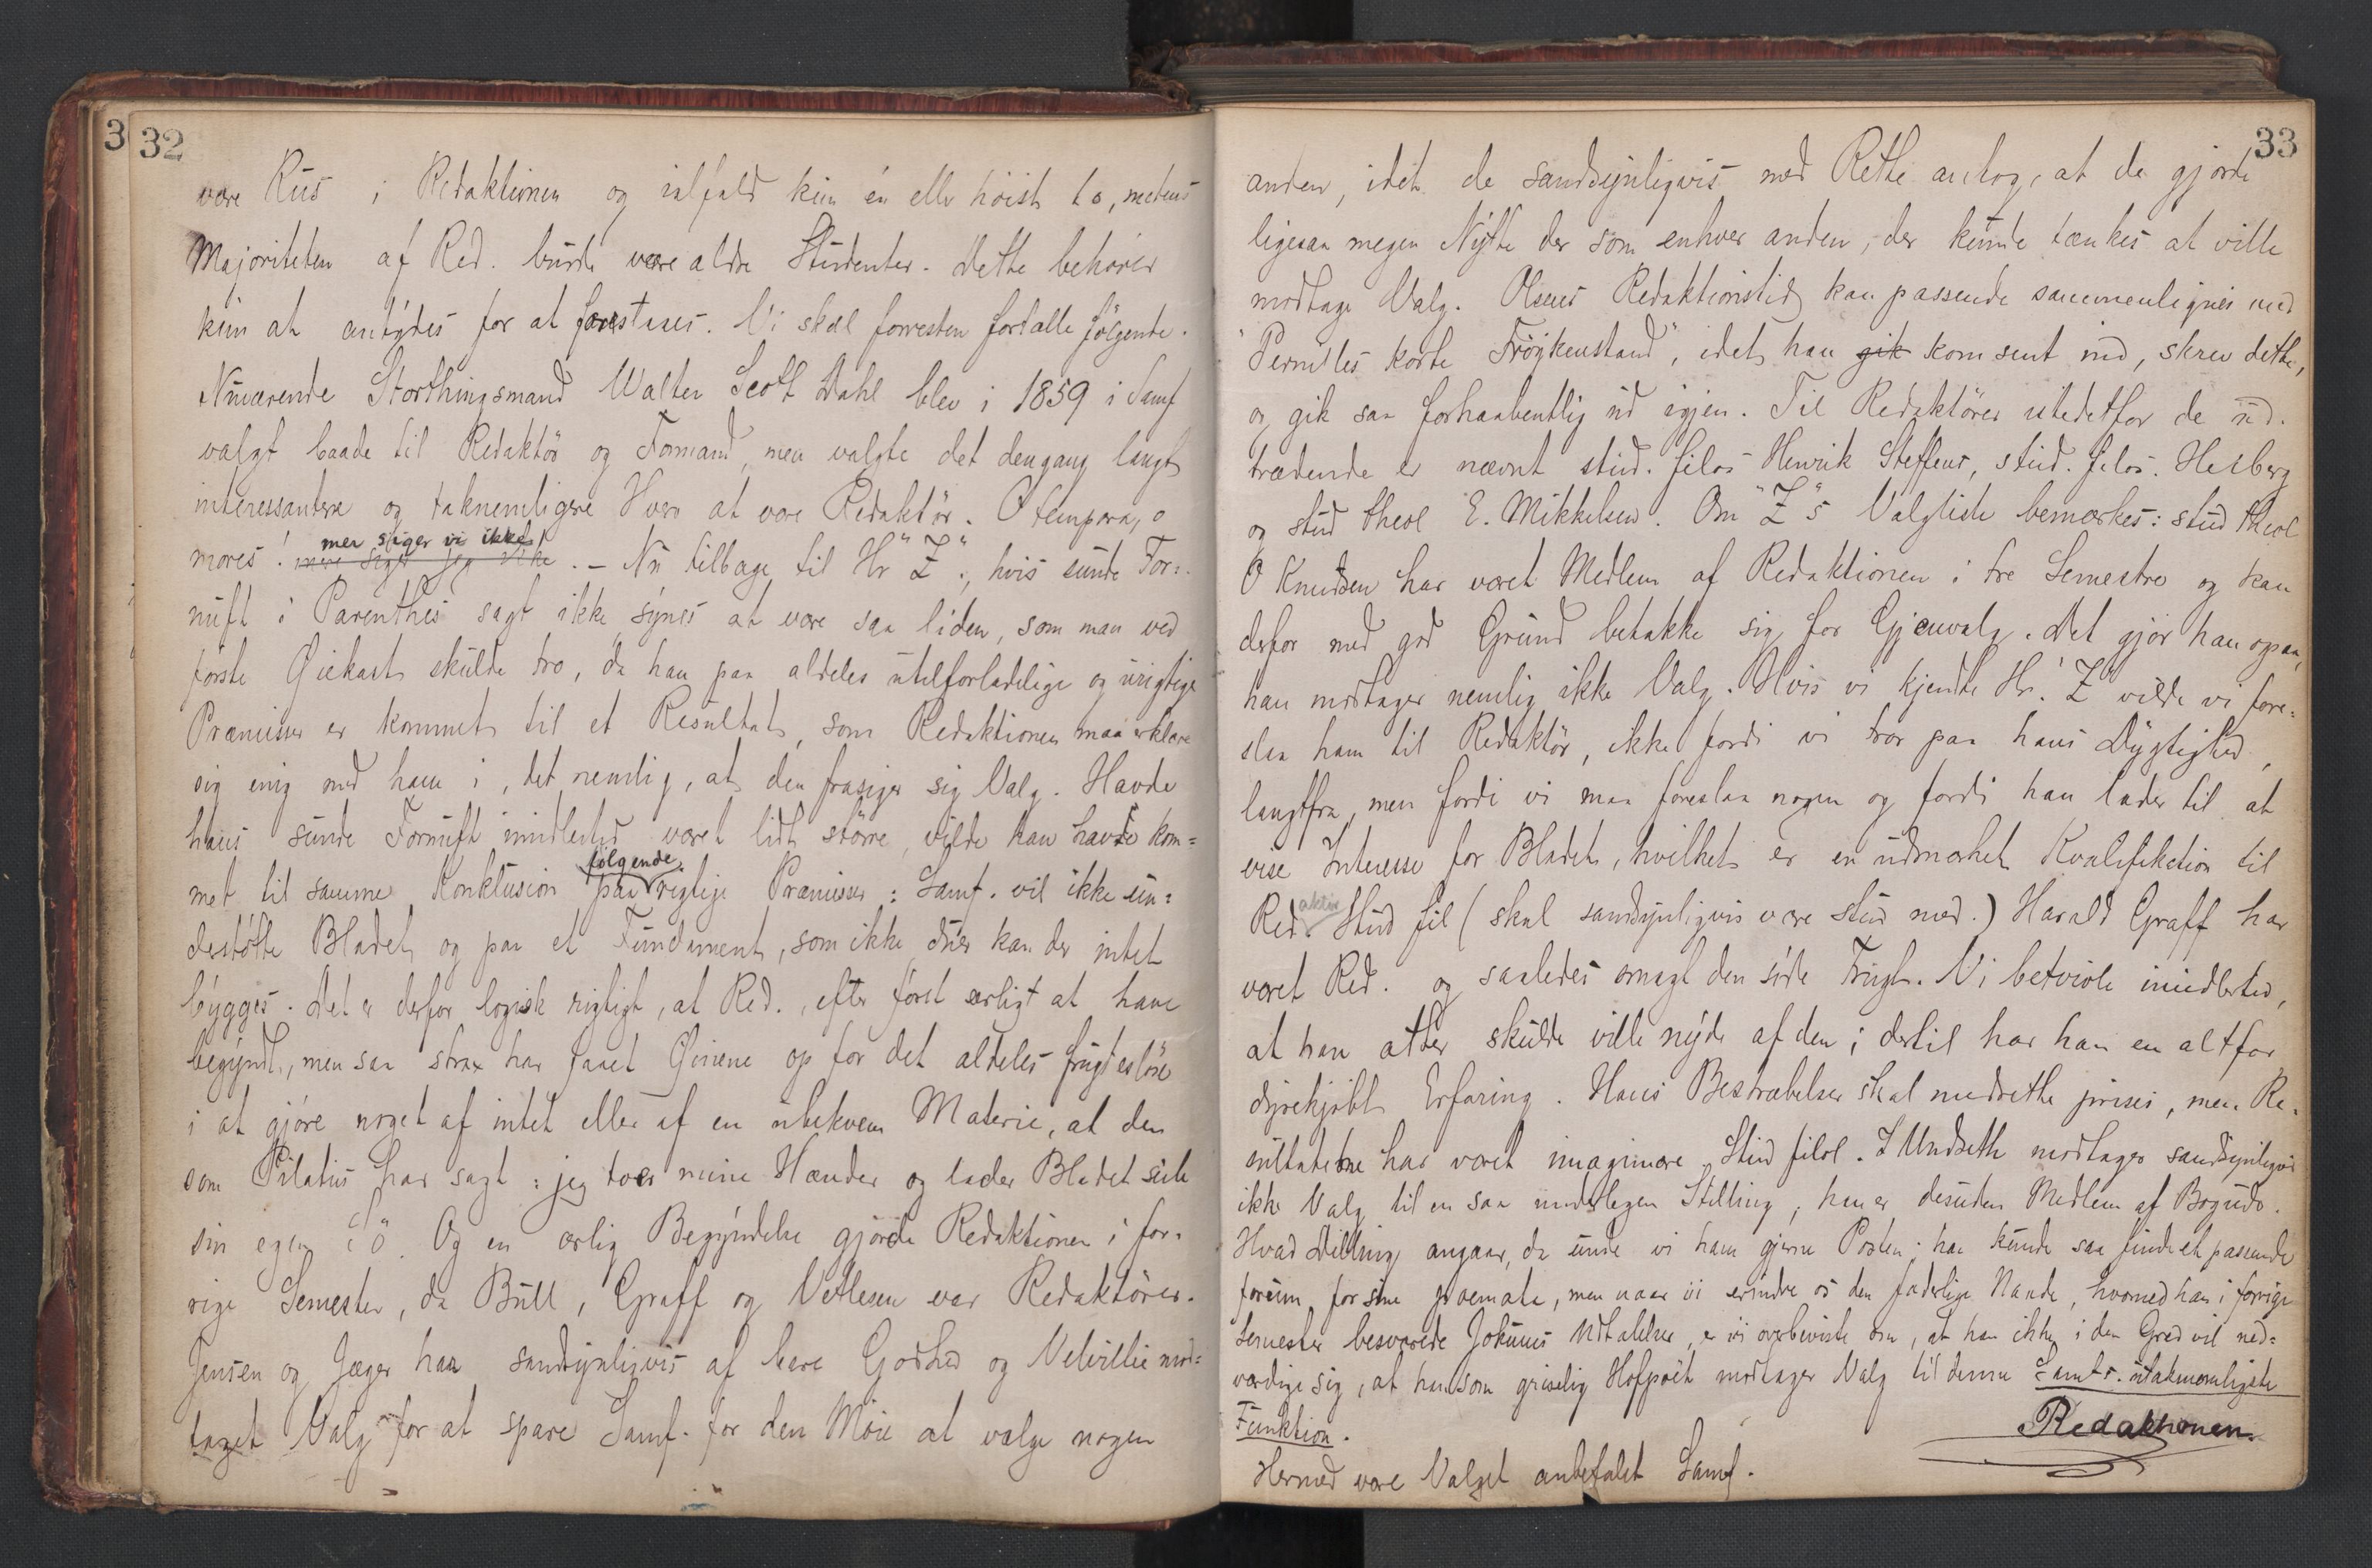 3
32
være Rus i Redaktionen og ialfald kun én eller höist to, medens
Majoriteten af Red. burde være ældre Studenter. Dette behöver
kun at antydes for at forstaaes. Vi skal forresten fortælle fölgende.
Nuværende Storthingsmand Walter Scott Dahl blev i 1859 i Samf
valgt baade til Redaktör og Formand, men valgte det dengang langt
interessantere og taknemligere Hverv at være Redaktör. O tempora, o
mores! men siger vi ikke. – Nu tilbage til Hr "Z", hvis sunde For-
nuft i Parenthes sagt ikke synes at være saa liden, som man ved
förste Öiekast skulde tro, da han paa aldeles utilforladelige og urigtige
Præmisser er kommet til et Resultat, som Redaktionen maa erklære
sig enig med ham i, det nemlig, at den frasiger sig Valg. Havde
hans sunde Fornuft imidlertid været lidt större, vilde han havde kom=
met til samme Konklusion paa følgende rigtige Præmisser: Samf. vil ikke un=
derstötte Bladet og paa et Fundament, som ikke duer kan der intet
bygges. Det er derfor logisk rigtigt, at Red., efter först ærligt at have
begyndt, men saa strax har faaet Öinene op for det aldeles frugteslöse
i at gjöre noget af intet eller af en ubekvem Materie, at den
som Pilatus har sagt: jeg toer mine Hænder og lader Bladet seile
sin egen Sö. Og en ærlig Begyndelse gjorde Redaktionen i for=
rige Semester, da Bull, Graff og Vetlesen var Redaktörer.
Jensen og Jæger har sandsynligvis af bare Godhed og Velvillie mod=
taget Valg for at spare Samf. for den Möie at vælge nogen
33
anden, idet de sandsynligvis med Rette antog, at de gjorde
ligesaa megen Nytte der som enhver anden, der kunde tænkes at ville
modtage Valg. Olsens Redaktionstid kan passende sammenlignes med
"Pernilles korte Fröykenstand", idet han gik kom sent ind, skrev dette,
og gik saa forhaabentlig ud igjen. Til Redaktörer istedetfor de ud.
trædende er nævnt stud. filos Henrik Steffens, stud. filos. Hesberg
og stud theol E. Mikkelsen. Om "Z"s Valgliste bemærkes: stud theol
O Knudsen har været Medlem af Redaktionen i tre Semestre og kan
derfor med god Grund betakke sig for Gjenvalg. Det gjör han ogsaa,
han modtager nemlig ikke Valg. Hvis vi kjendte Hr. Z vilde vi fore=
slaa ham til Redaktör, ikke fordi vi tror paa hans Dygtighed,
langtfra, men fordi vi maa foreslaa nogen og fordi han lader til at
vise Interesse for Bladet, hvilket er en udmærket Kvalifikation til
Redaktör. Stud fil (skal sandsynligvis være stud med.) Harald Graff har
været Red. og saaledes smagt den söde Frugt. Vi betvivle imidlertid,
at han atter skulde ville nyde af den; dertil har han en altfor
dyrekjöbt Erfaring. Hans Bestræbelser skal medrette prises, men Re=
sultaterne har været imaginære. Stud filol. I Undseth modtager sandsynligvis
ikke Valg til en saa underlegen Stilling, han er desuden Medlem af Bogudv.
Hvad Dilling angaar, da unde vi ham gjerne Posten; han kunde saa finde et passende
forum for sine poemata, men naar vi erindre os den faderlige Naade, hvormed han i forrige
Semester besvarede Jokums Udtalelser, er vi overbeviste om, at han ikke i den Grad vil ned=
værdige sig, at han som grinelig Hofpoët modtager Valg til denne Samf.s. utaknemligste
Funktion.
Redaktionen.
Hermed være Valget anbefalet Samf.